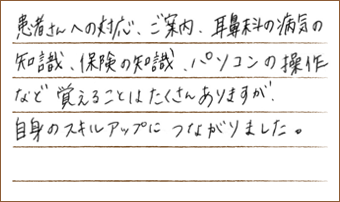 患者さんへの対応、ご案内、耳鼻科の病気の
知識、保険の知識、パソコンの操作
など覚えることはたくさんありますが、
自身のスキルアップにつながりました。